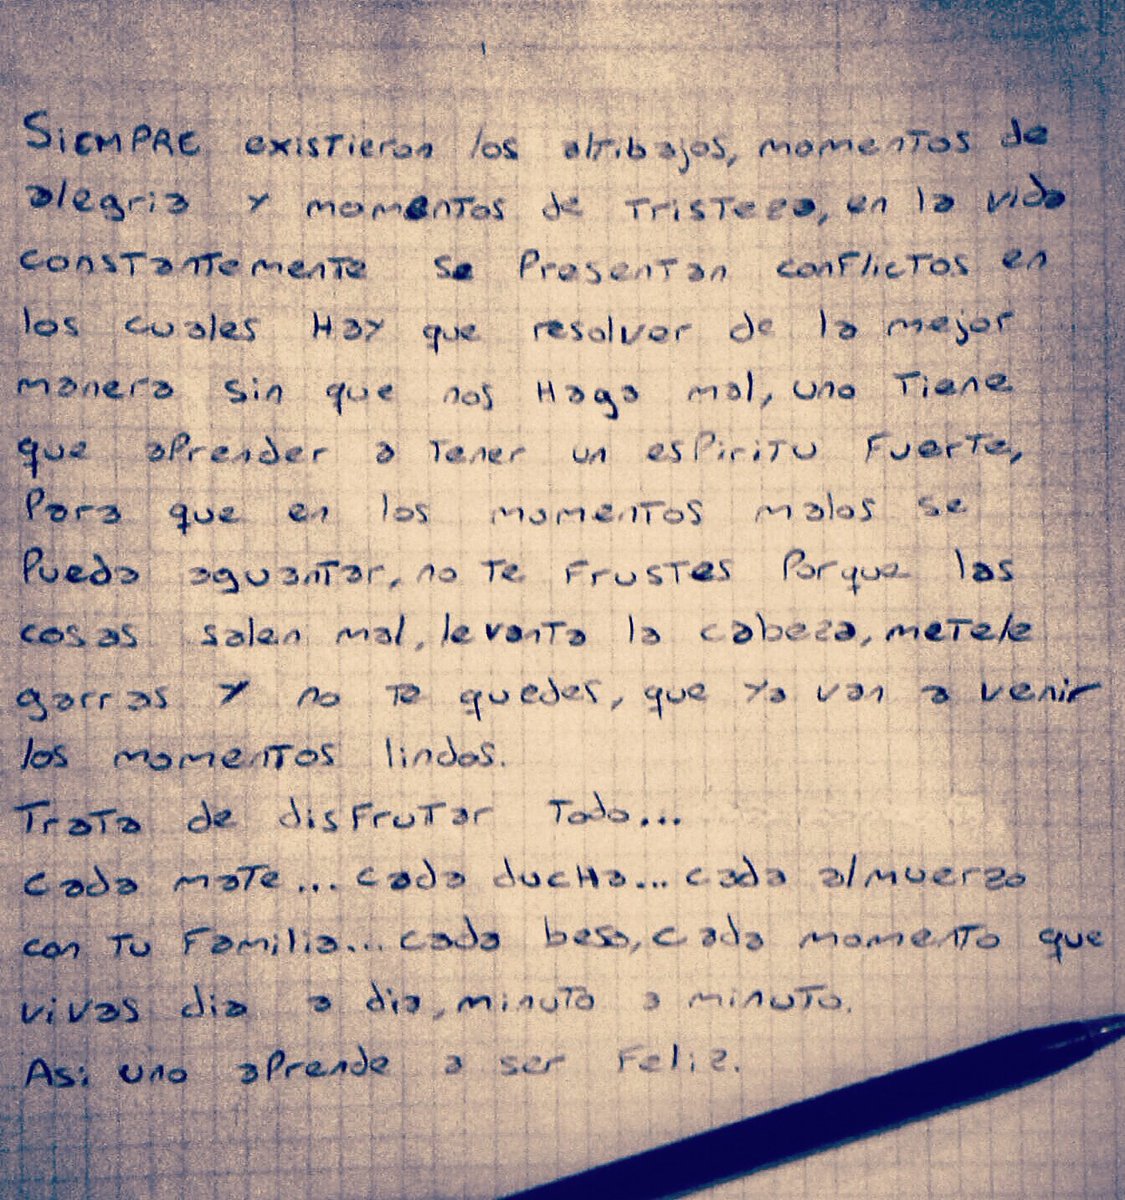 SIEMPRE existieron los altibajos, momentos de
alegria y momentos de tristeza, en la vida
constantemente se presentan conflictos en
los cuales Hay que resolver de la mejor
manera sin que nos Haga mal, uno tiene
que aprender a tener un espiritu fuerte,
Para que en los momentos malos se
Pueda aguantar, no te frustes Porque las
cosas salen mal, levanta la cabeza, metele
garras y no te quedes, que ya van a venir
los momentos lindos.
Trata de disfrutar todo...
cada mate... cada ducha... cada almuerzo
con tu familia... cada beso, cada momento que
vivas dia a dia, minuto a minuto.
Asi uno aprende a ser feliz.